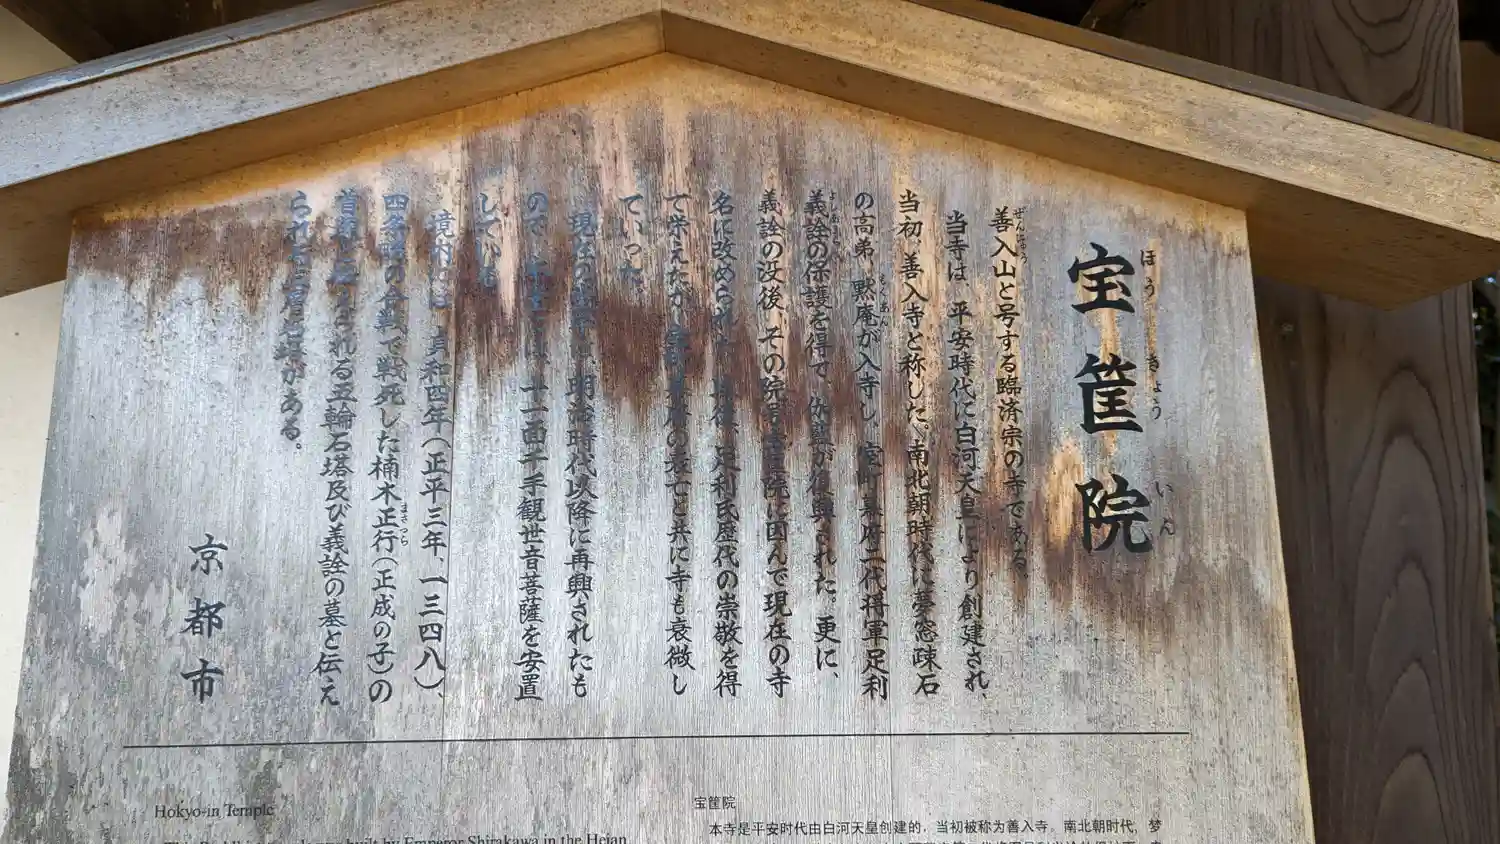 宝筐院
ほうきょういん
善入山と号する臨済宗の寺である。
ぜんにゅう
当寺は、平安時代に白河天皇により創建され、
当初、善入寺と称した。南北朝時代に夢窓疎石
の高弟 黙庵が入寺し、室町幕府二代将軍足利
もくあん
義詮の保護を得て、伽藍が復興された。更に、
よしあきら
義詮の没後、その院号宝筐院に因んで現在の寺
名に改められた。以後、足利氏歴代の崇敬を得
て栄えたが、室町幕府の衰亡と共に寺も衰微し
ていった。
現在の は、明治時代以降に再興されたも
ので、 には、十一面千手観世音菩薩を安置
している。
境内には、貞和四年(正平三年、一三四八)、
四条畷の合戦で戦死した楠木正行(正成の子)の
まさつら
首塚と伝えられる五輪石塔及び義詮の墓と伝え
られる三層石塔がある。
京都市
Hokyo-in Temple
built by Emperor Shirakawa in the Heian
宝筐院
本寺是平安时代由白河天皇创建的，当初被称为善入寺。南北朝时代，梦